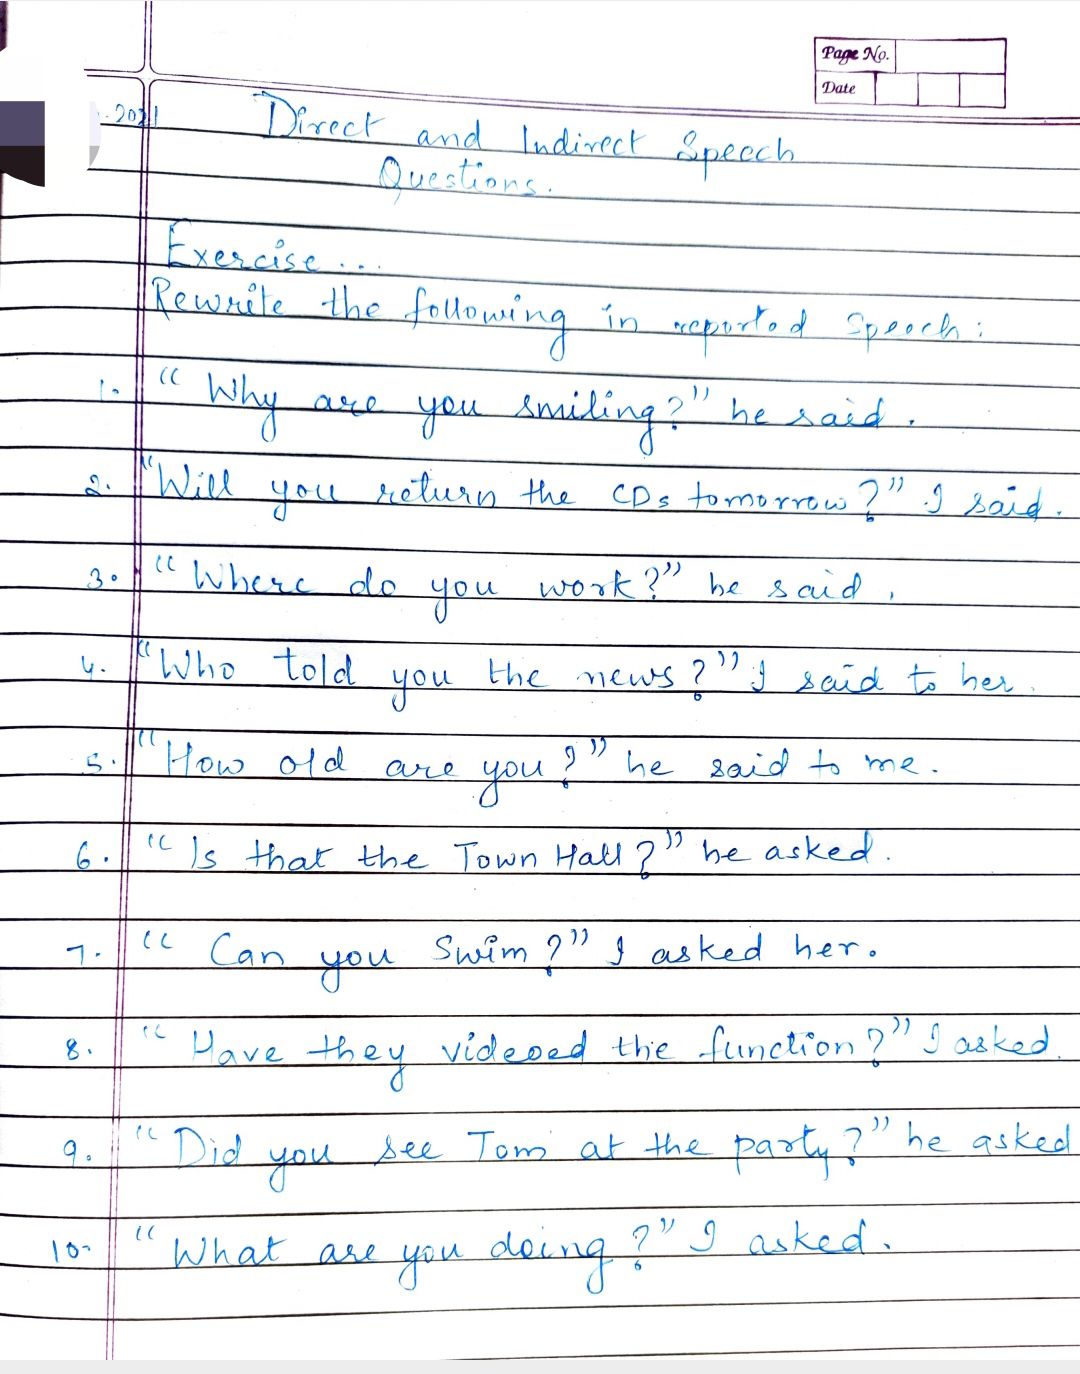 Page No.
Date
.2021
Direct and Indirect Speech
Questions.
Exercise ...
Rewrite the following in reported Speech:
1. "Why are you smiling?" he said.
2. "Will you return the CDs tomorrow?" I said.
3. "Where do you work?" he said.
4. "Who told you the news?" I said to her.
5. "How old are you?" he said to me.
6. "Is that the Town Hall?" he asked.
7. "Can you Swim?" I asked her.
8. "Have they videoed the function?" I asked.
9. "Did you see Tom at the party?" he asked
10. "What are you doing?" I asked.